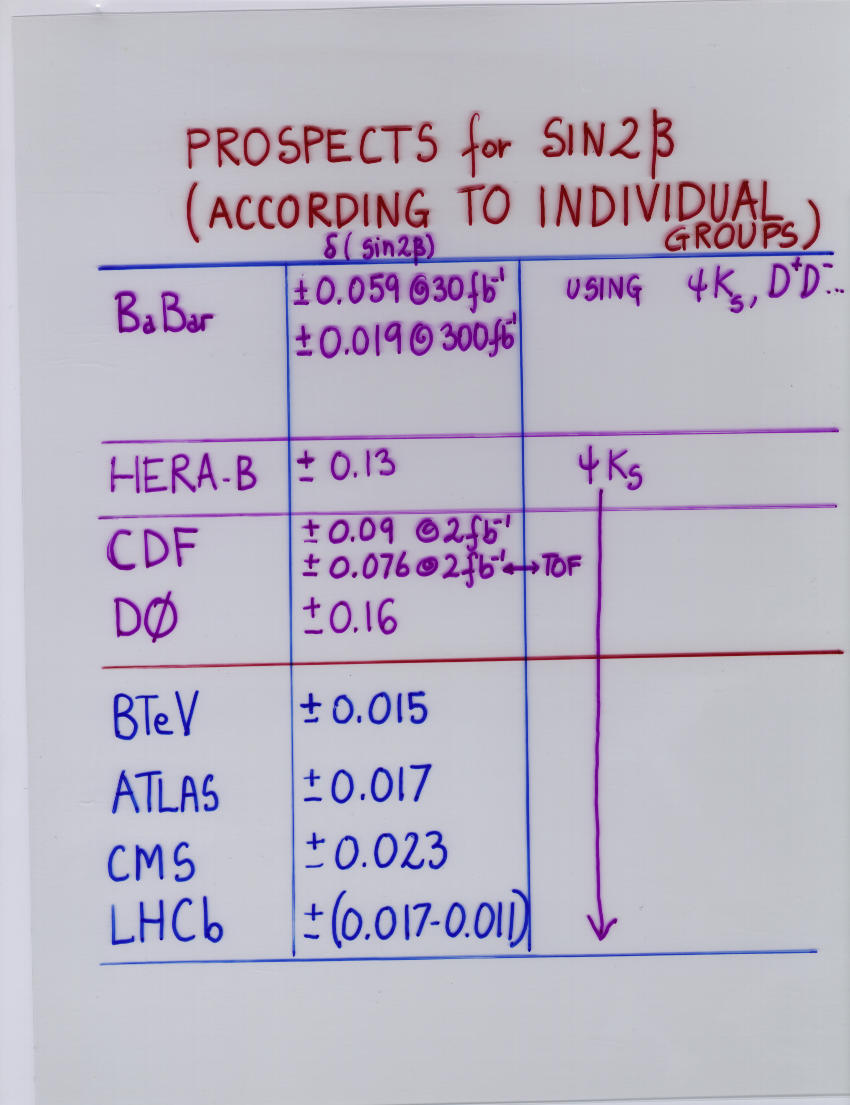 PROSPECTS for SIN2β
(ACCORDING TO INDIVIDUAL
GROUPS)
δ(sin2β)
BaBar ±0.059 @30fb⁻¹ USING ψKs, D⁺D⁻...
±0.019 @ 300fb⁻¹
HERA-B ± 0.13 ψKs
CDF ± 0.09 @2fb⁻¹
± 0.076 @2fb⁻¹ ↔ TOF
DØ ± 0.16
BTeV ± 0.015
ATLAS ± 0.017
CMS ± 0.023
LHCb ±(0.017-0.011)